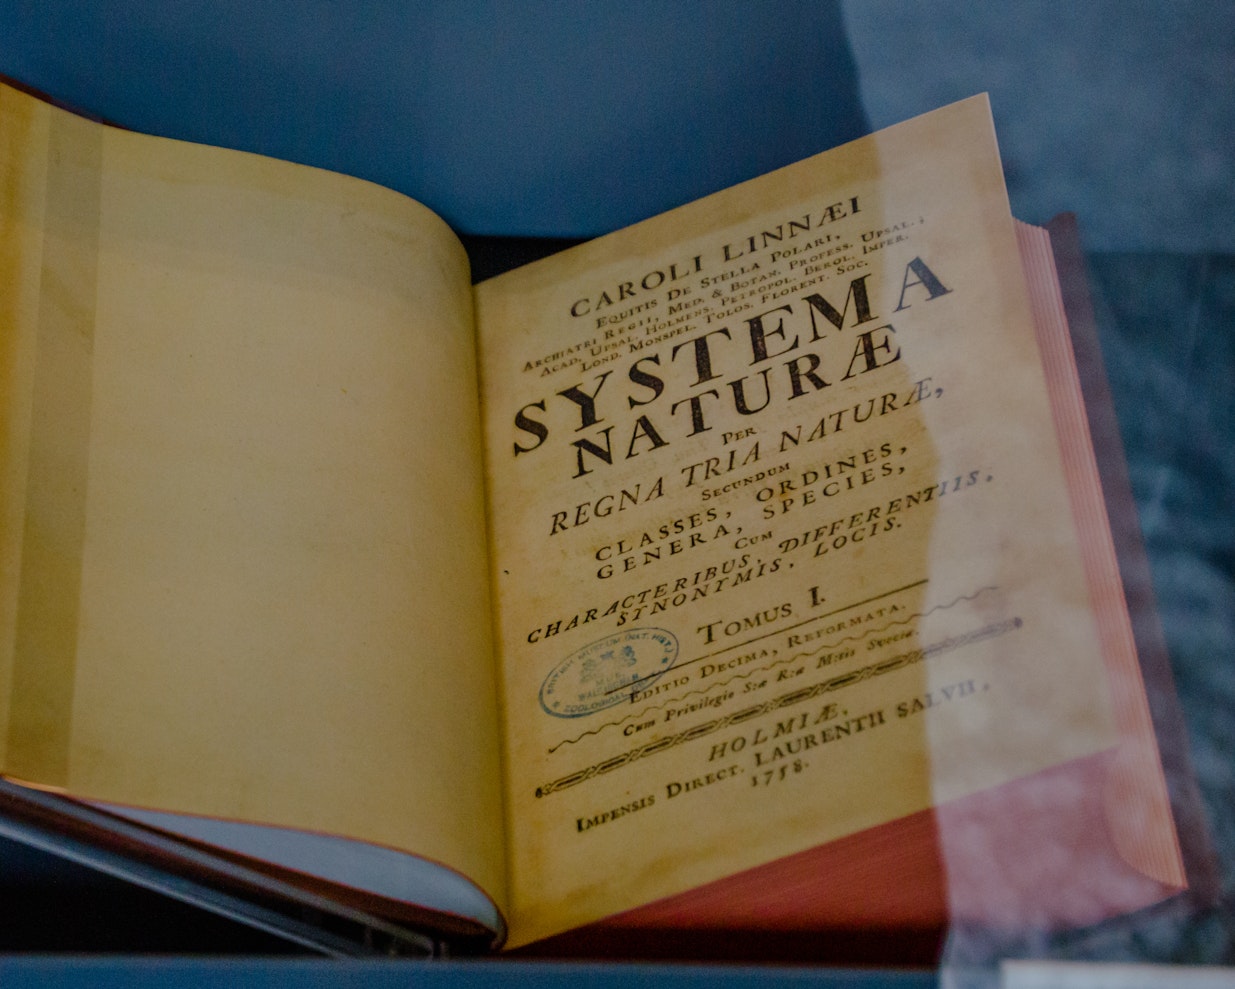 CAROLI LINNÆI
EQUITIS DE STELLA POLARI,
ARCHIATRI REGII, MED. & BOTAN. PROFESS. UPSAL.;
ACAD. UPSAL. HOLMENS. PETROPOL. BEROL. IMPER.
LOND. MONSPEL. TOLOS. FLORENT. SOC.
SYSTEMA
NATURÆ
PER
REGNA TRIA NATURÆ,
SECUNDUM
CLASSES, ORDINES,
GENERA, SPECIES,
CUM
CHARACTERIBUS, DIFFERENTIIS,
SYNONYMIS, LOCIS.
TOMUS I.
EDITIO DECIMA, REFORMATA.
Cum Privilegio S:æ R:æ M:tis Sveciæ.
BRITISH MUSEUM (NAT. HIST.)
ZOOLOGICAL
HOLMIÆ,
IMPENSIS DIRECT. LAURENTII SALVII,
1758.